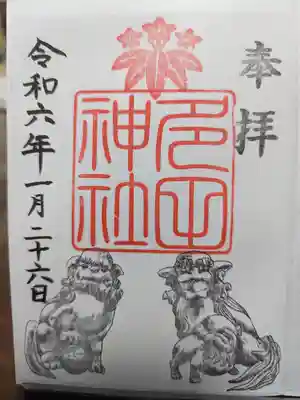 奉拝
多田神社
令和六年一月二十六日